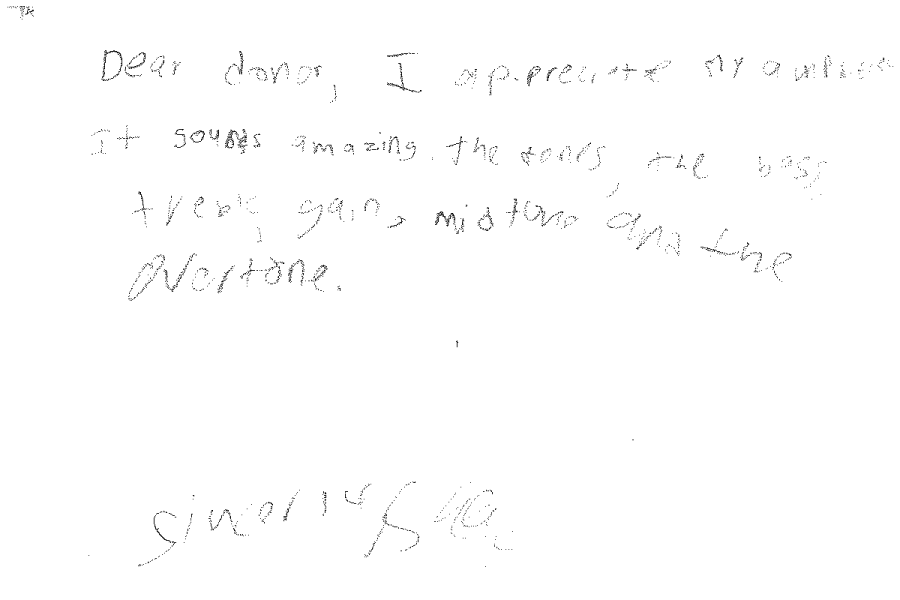 Dear donor, I appreciate my
It sounds amazing. the tones, the bass
treble, gain, midtone and the
overtone.